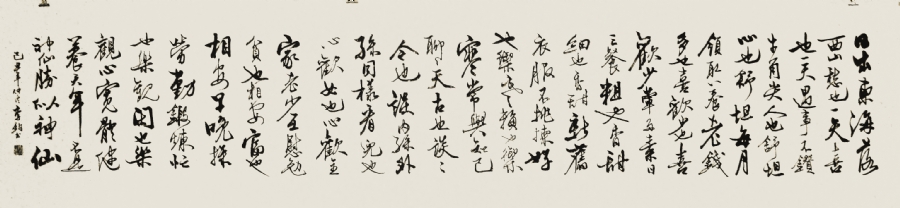 日出東海落
西山愁也一天喜
也一天遇事不鑽
牛角尖人也舒坦
心也舒坦每月
領取養老錢
多也喜歡少也喜
歡少葷多素日
三餐粗也香甜
細也香甜新舊
衣服不挑揀好
也禦寒賴也禦
寒常與知己
聊々天古也談々
今也談内孫外
孫同樣看兒也
心歡女也心歡全
家老少互慰勉
貧也相安富也
相安早晚操
勞勤鍛煉忙
也樂觀閑也樂
觀心寬體健
養天年不是
神仙勝似神仙
己丑年